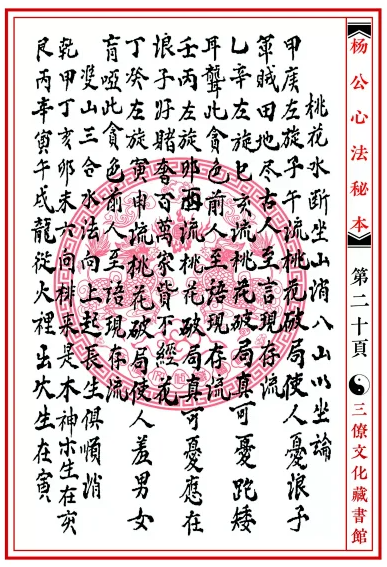 杨公心法秘本
第二十頁
三僚文化藏書館
桃花水斷坐山消八山以坐論
甲庚左旋子午流桃花破局使人憂浪子
軍賊田地尽古人至言現存流
乙辛左旋巳亥流桃花破局真可憂跎矮
耳聾此貪色前人至語現存流
壬丙左旋卯酉流桃花破局真可憂應在
浪子好賭奪百萬家貲不經花
丁癸左旋寅申流桃花破局使人羞男女
盲啞此貪色前人至語現存流
雙山三合水法向上起長生俱順消
乾甲丁亥卯未六向排來是木神木生在亥
艮丙辛寅午戌龍從火裡出火生在寅